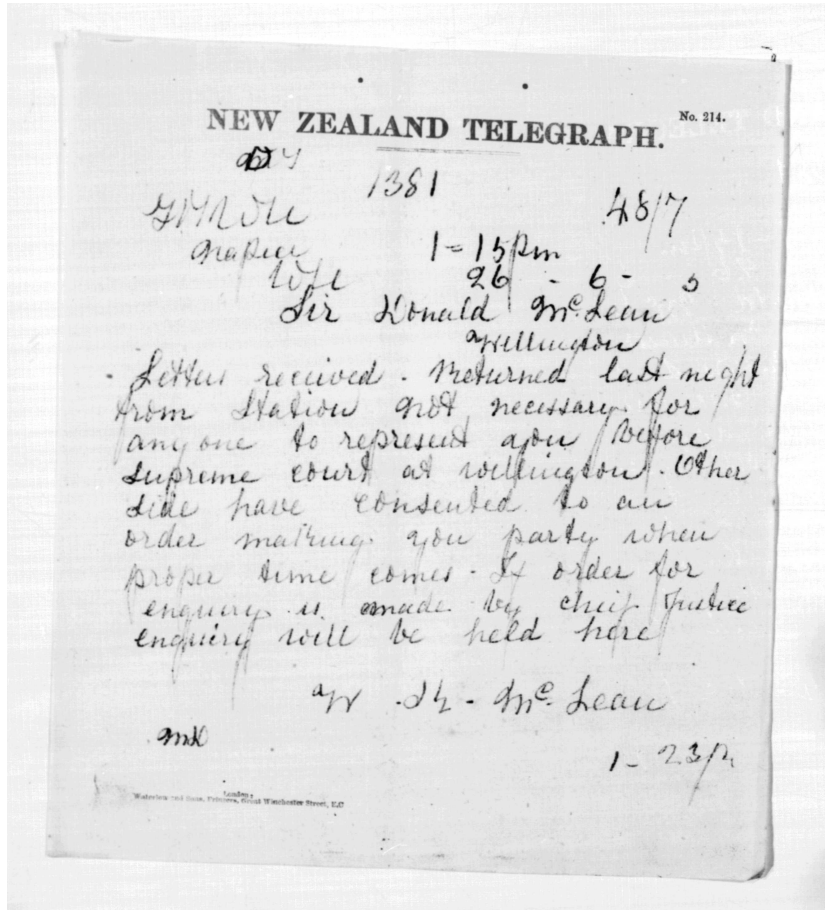 No. 214.
NEW ZEALAND TELEGRAPH.
1381
48/7
Napier 1=15pm
26 - 6 - 5
Sir Donald McLean
Wellington
Letter received. Returned last night
from Station not necessary for
anyone to represent you before
Supreme court at wellington. Other
side have consented to an
order making you party when
proper time comes - If order for
enquiry is made by chief Justice
enquiry will be held here
McLean
1 - 23/
London:
Waterlow and Sons, Printers, Great Winchester Street, E.C